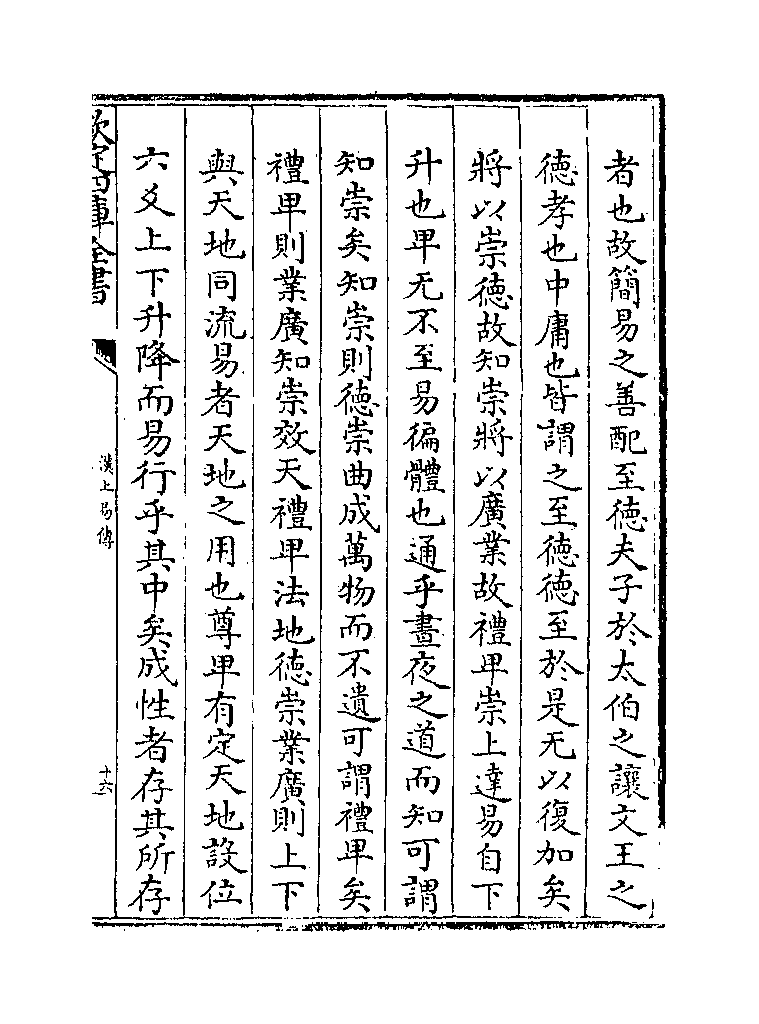 者也故簡易之善配至徳夫子於太伯之讓文王之
徳孝也中庸也皆謂之至徳徳至於是无以復加矣
將以崇徳故知崇將以廣業故禮卑崇上達易自下
升也卑无不至易徧體也通乎晝夜之道而知可謂
知崇矣知崇則徳崇曲成萬物而不遺可謂禮卑矣
禮卑則業廣知崇效天禮卑法地徳崇業廣則上下
與天地同流易者天地之用也尊卑有定天地設位
六爻上下升降而易行乎其中矣成性者存其所存
欽定四庫全書
漢上易傳
十六